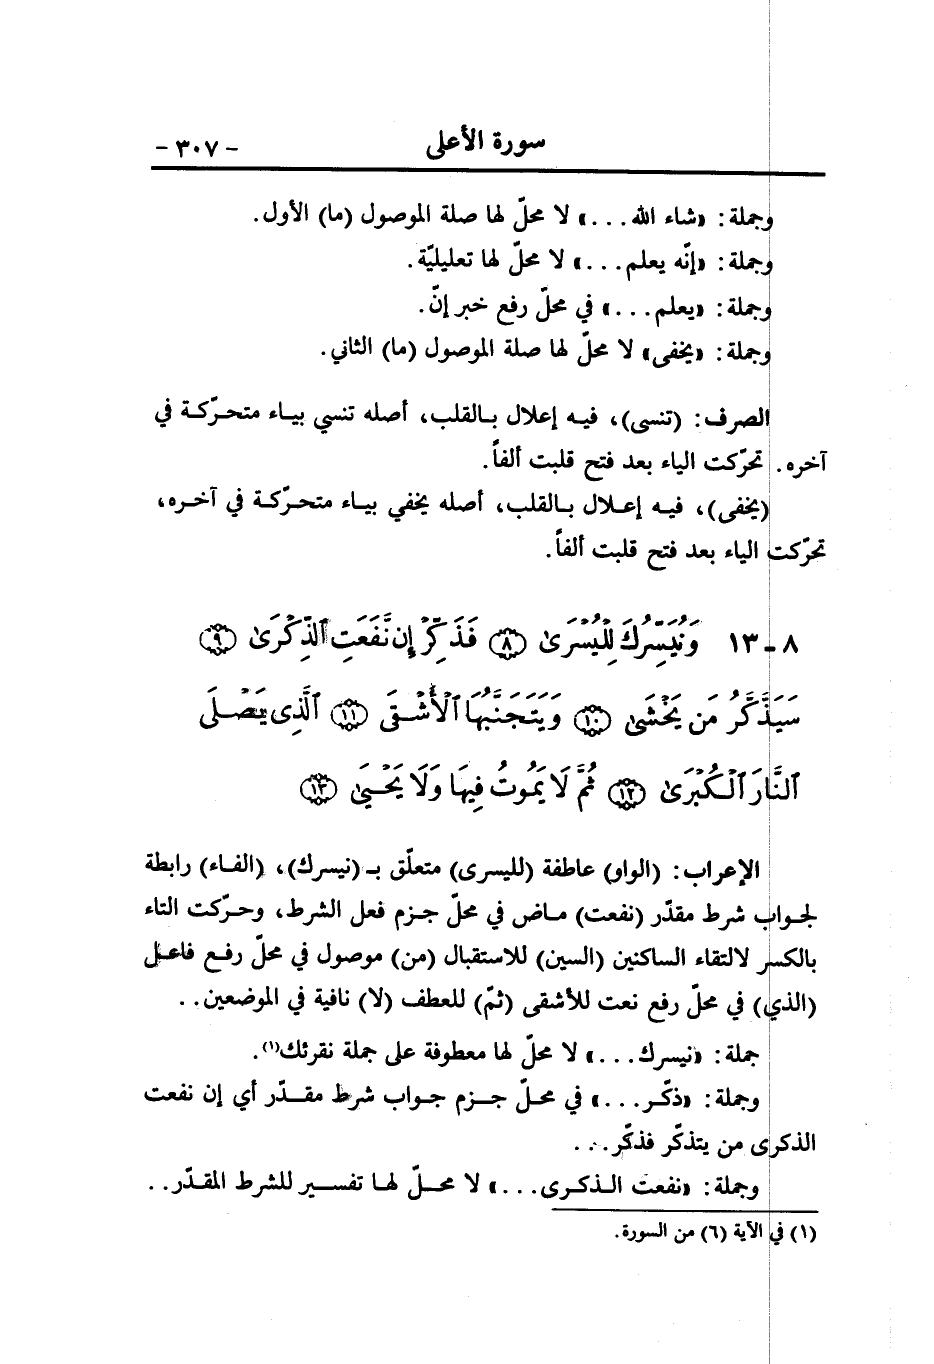 سورة الأعلى - ٣٠٧ -
وجملة: «شاء الله...» لا محلّ لها صلة الموصول (ما) الأول.
وجملة: «إنّه يعلم...» لا محلّ لها تعليليّة.
وجملة: «يعلم...» في محلّ رفع خبر إنّ.
وجملة: «يخفى» لا محلّ لها صلة الموصول (ما) الثاني.
الصرف: (تنسى)، فيه إعلال بالقلب، أصله تنسي بياء متحرّكة في
آخره. تحرّكت الياء بعد فتح قلبت ألفاً.
(يخفى)، فيه إعلال بالقلب، أصله يخفي بياء متحركة في آخره،
تحرّكت الياء بعد فتح قلبت ألفاً.
٨ - ١٣ وَنُيَسِّرُكَ لِلْيُسْرَىٰ ﴿٨﴾ فَذَكِّرْ إِن نَّفَعَتِ ٱلذِّكْرَىٰ ﴿٩﴾
سَيَذَّكَّرُ مَن يَخْشَىٰ ﴿١٠﴾ وَيَتَجَنَّبُهَا ٱلْأَشْقَى ﴿١١﴾ ٱلَّذِى يَصْلَى
ٱلنَّارَ ٱلْكُبْرَىٰ ﴿١٢﴾ ثُمَّ لَا يَمُوتُ فِيهَا وَلَا يَحْيَىٰ ﴿١٣﴾
الإعراب: (الواو) عاطفة (لليسرى) متعلّق بـ (نيسرك)، (الفاء) رابطة
لجواب شرط مقدّر (نفعت) ماض في محلّ جزم فعل الشرط، وحرّكت التاء
بالكسر لالتقاء الساكنين (السين) للاستقبال (من) موصول في محلّ رفع فاعل
(الذي) في محلّ رفع نعت للأشقى (ثمّ) للعطف (لا) نافية في الموضعين..
جملة: «نيسرك...» لا محلّ لها معطوفة على جملة نقرئك(١).
وجملة: «ذكّر...» في محلّ جزم جواب شرط مقدّر أي إن نفعت
الذكرى من يتذكّر فذكّر...
وجملة: «نفعت الذكرى...» لا محلّ لها تفسير للشرط المقدّر..
(١) في الآية (٦) من السورة.